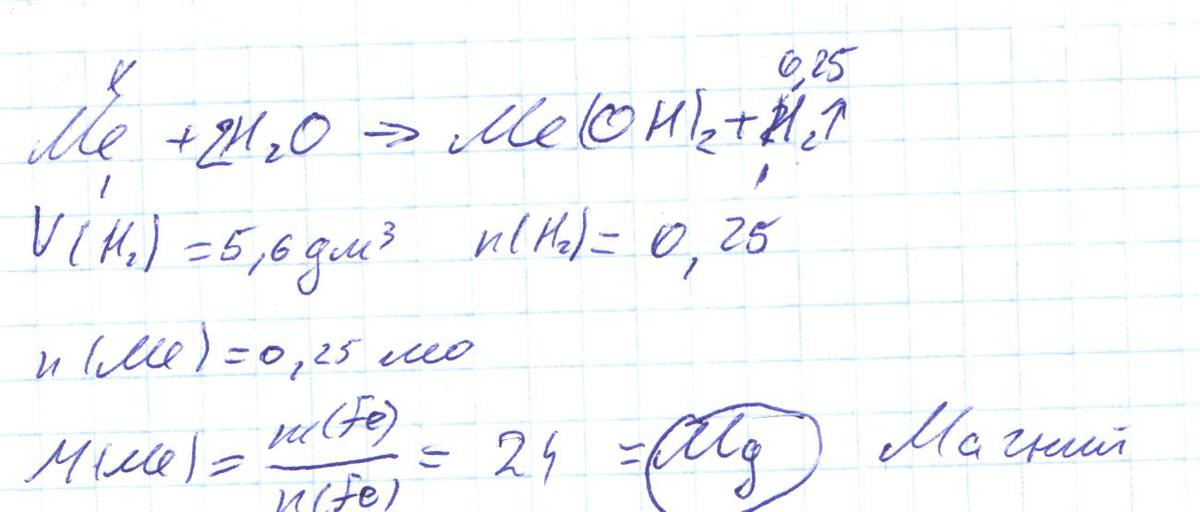 x 0,25
Me + 2H₂O → Me(OH)₂ + H₂↑
1 1
V(H₂) = 5,6 дм³ n(H₂) = 0,25
n(Me) = 0,25 мо
M(Me) = m(Fe)/n(Fe) = 24 = Mg Магний